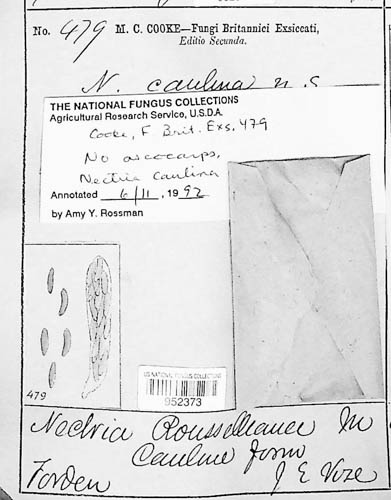 No. 479 M. C. COOKE—Fungi Britannici Exsiccati,
Editio Secunda.
N. caulina n. s
THE NATIONAL FUNGUS COLLECTIONS
Agricultural Research Service, U.S.D.A.
Cooke, F. Brit. Exs. 479
No ascocarps,
Nectria caulina
Annotated 6/11, 1992
by Amy Y. Rossman
479
US NATIONAL FUNGUS COLLECTIONS
952373
Nectria Rousselliana M
Cauline form
Forden J E Vize